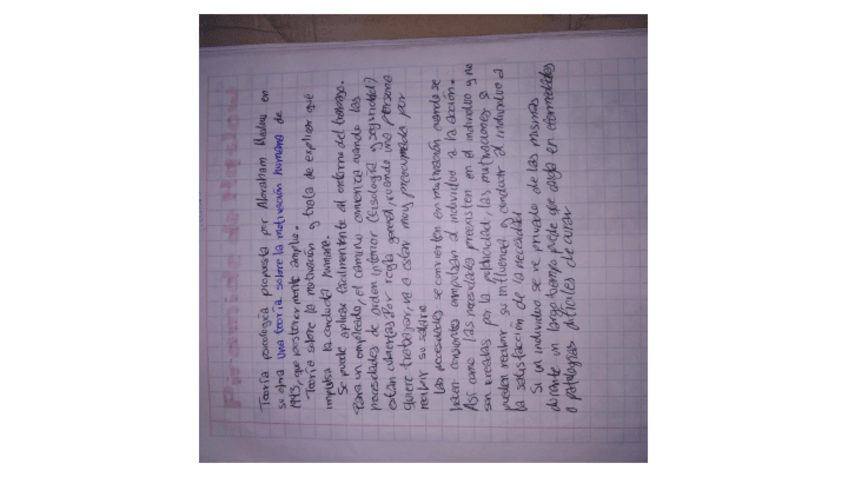 Pirámide de Maslow
Teoría psicologica propuesta por Abraham Maslow en
su obra una teoría sobre la motivación humana de
1943, que posteriormente amplio.
Teoría sobre la motivación y trata de explicar qué
impulsa la conducta humana.
Se puede aplicar facilmente al entorno del trabajo.
Para un empleado, el camino comienza cuando las
necesidades de orden inferior (fisología y seguridad)
están cubiertas. Por regla general, cuando una persona
quiere trabajar, va a estar muy preocumada por
recibir su salario
Las necesidades se convierten en motivación cuando se
hacen consientes empulsan al individuo a la acción.
Así como las necesidades preexisten en el individuo y no
son creadas por la publicidad, las motivaciones si
pueden recibir su influencia y conducir al individuo a
la satisfacción de la necesidad
Si un individuo se ve privado de las mismas
durante un largo tiempo puede que caiga en efermedades
o patologias dificiles de curar